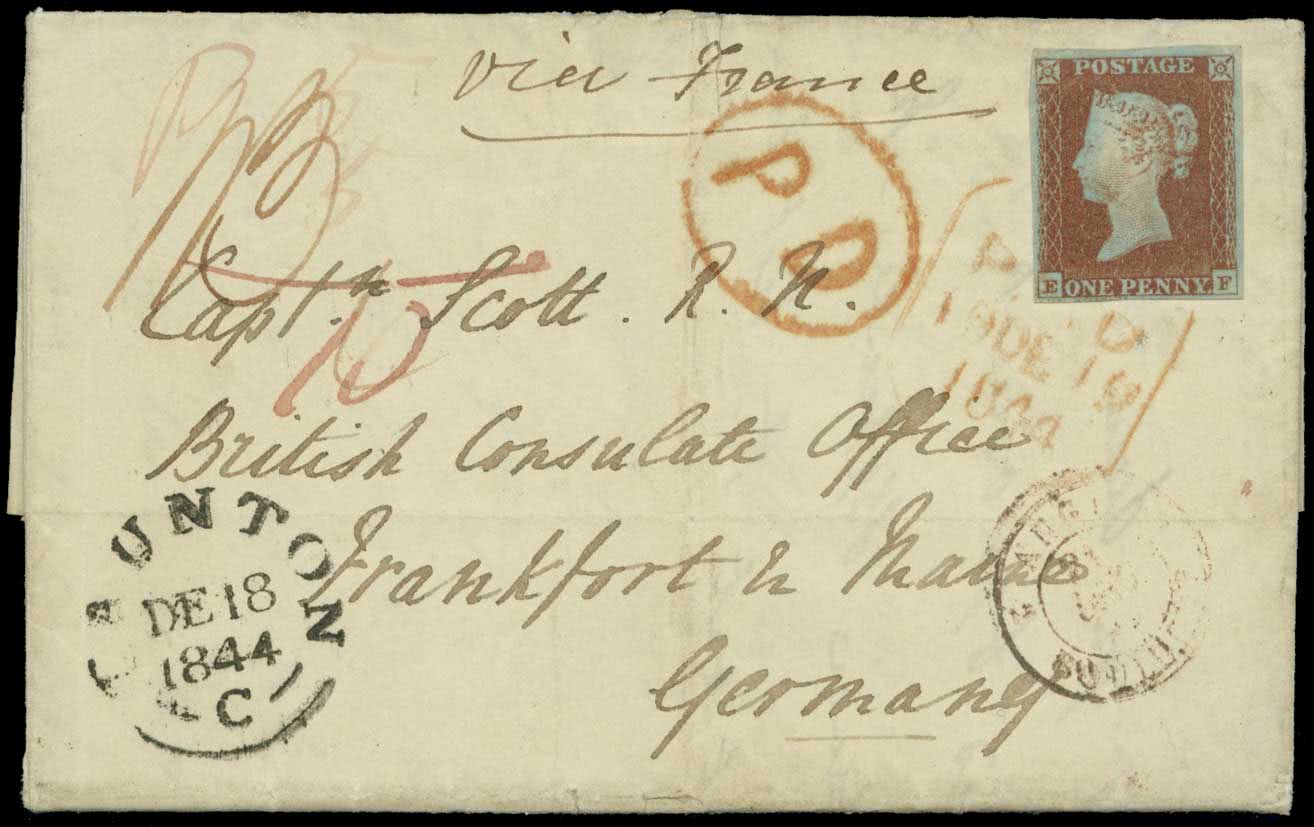 via France
POSTAGE
E ONE PENNY F
P D
Capt.n Scott. R. N.
PAID
19 DE 19
1844
British Consulate Office
Frankfort n Maine
Germany
TAUNTON
DE 18
1844
C